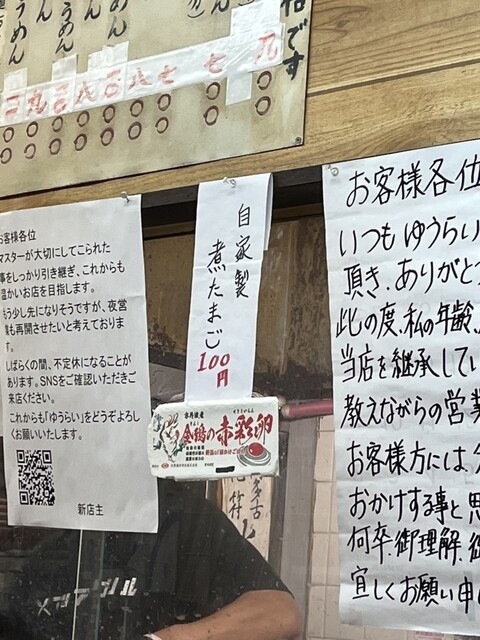 格です
うめん
めん
うめん
ん
三九三八三八七七九
〇〇〇〇〇〇〇〇〇
〇〇〇〇〇〇〇〇〇
お客様各位
マスターが大切にしてこられた
事をしっかり引き継ぎ、これからも
温かいお店を目指します。
もう少し先になりそうですが、夜営
業も再開させたいと考えておりま
す。
しばらくの間、不定休になることが
あります。SNSをご確認いただきご
来店ください。
これからも「ゆうらい」をどうぞよろし
くお願いいたします。
新店主
自家製
煮たまご
100
円
京丹波産
金鶏の赤彩卵
お客様各位
いつもゆうらい
頂き、ありがとう
此の度、私の年齢、
当店を継承してい
教えながらの営業
お客様方には、
おかけする事と思
何卒、御理解、御
宜しくお願い申し
多古